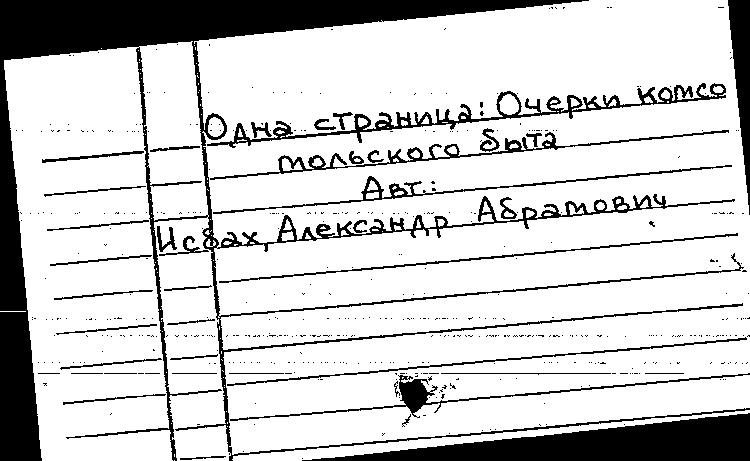 Одна страница: Очерки комсо
мольского быта
Авт.:
Исбах, Александр Абрамович